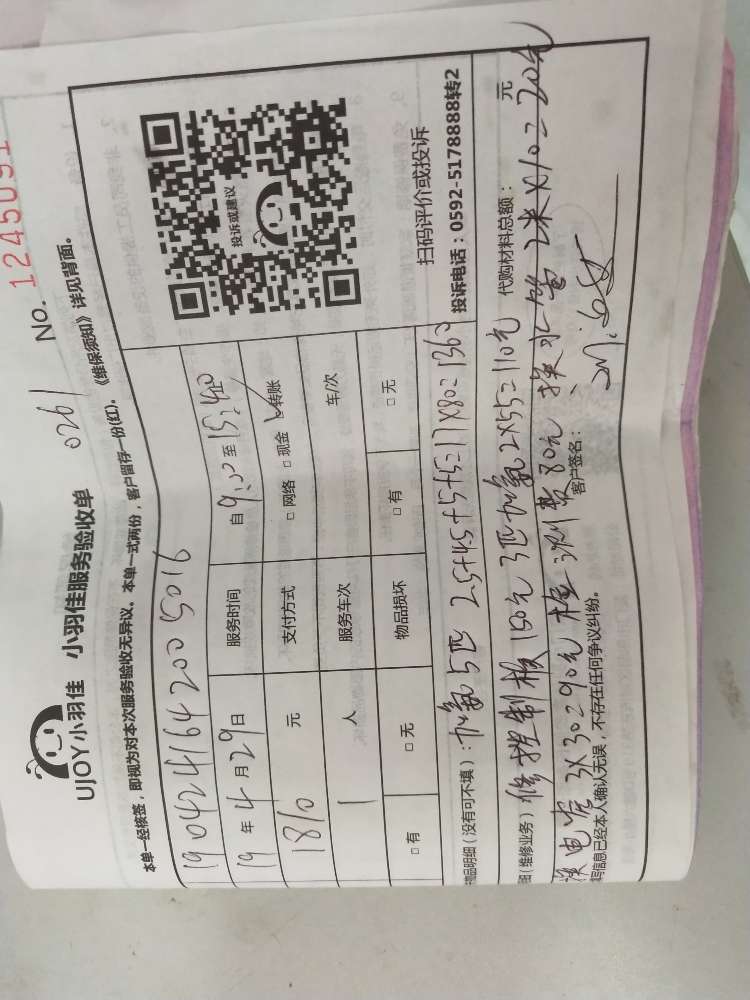 1245091
No.
0261
UJOY小羽佳 小羽佳服务验收单
本单一经核签，即视为对本次服务验收无异议。本单一式两份，客户留存一份(红)。《维保须知》详见背面。
190424164200 5016
19 年 4 月 29 日 服务时间 自 9:00 至 15:40
1810 元 支付方式 □ 网络 □ 现金 ☑ 转账
1 人 服务车次 车/次
□ 有 □ 无 物品损坏 □ 有 □ 无
投诉或建议
扫码评价或投诉
投诉电话：0592-5178888转2
物品明细（没有可不填）：加氟5匹 2.5+4.5+5+5=17×80=1360
（维修业务） 修控制板 150元 3匹加氟 2×55=110元 代购材料总额： 元
换电容 3×30=90元 检测费80元、换水管 2米×10=20元
信息已经本人确认无误，不存在任何争议纠纷。 客户签名：